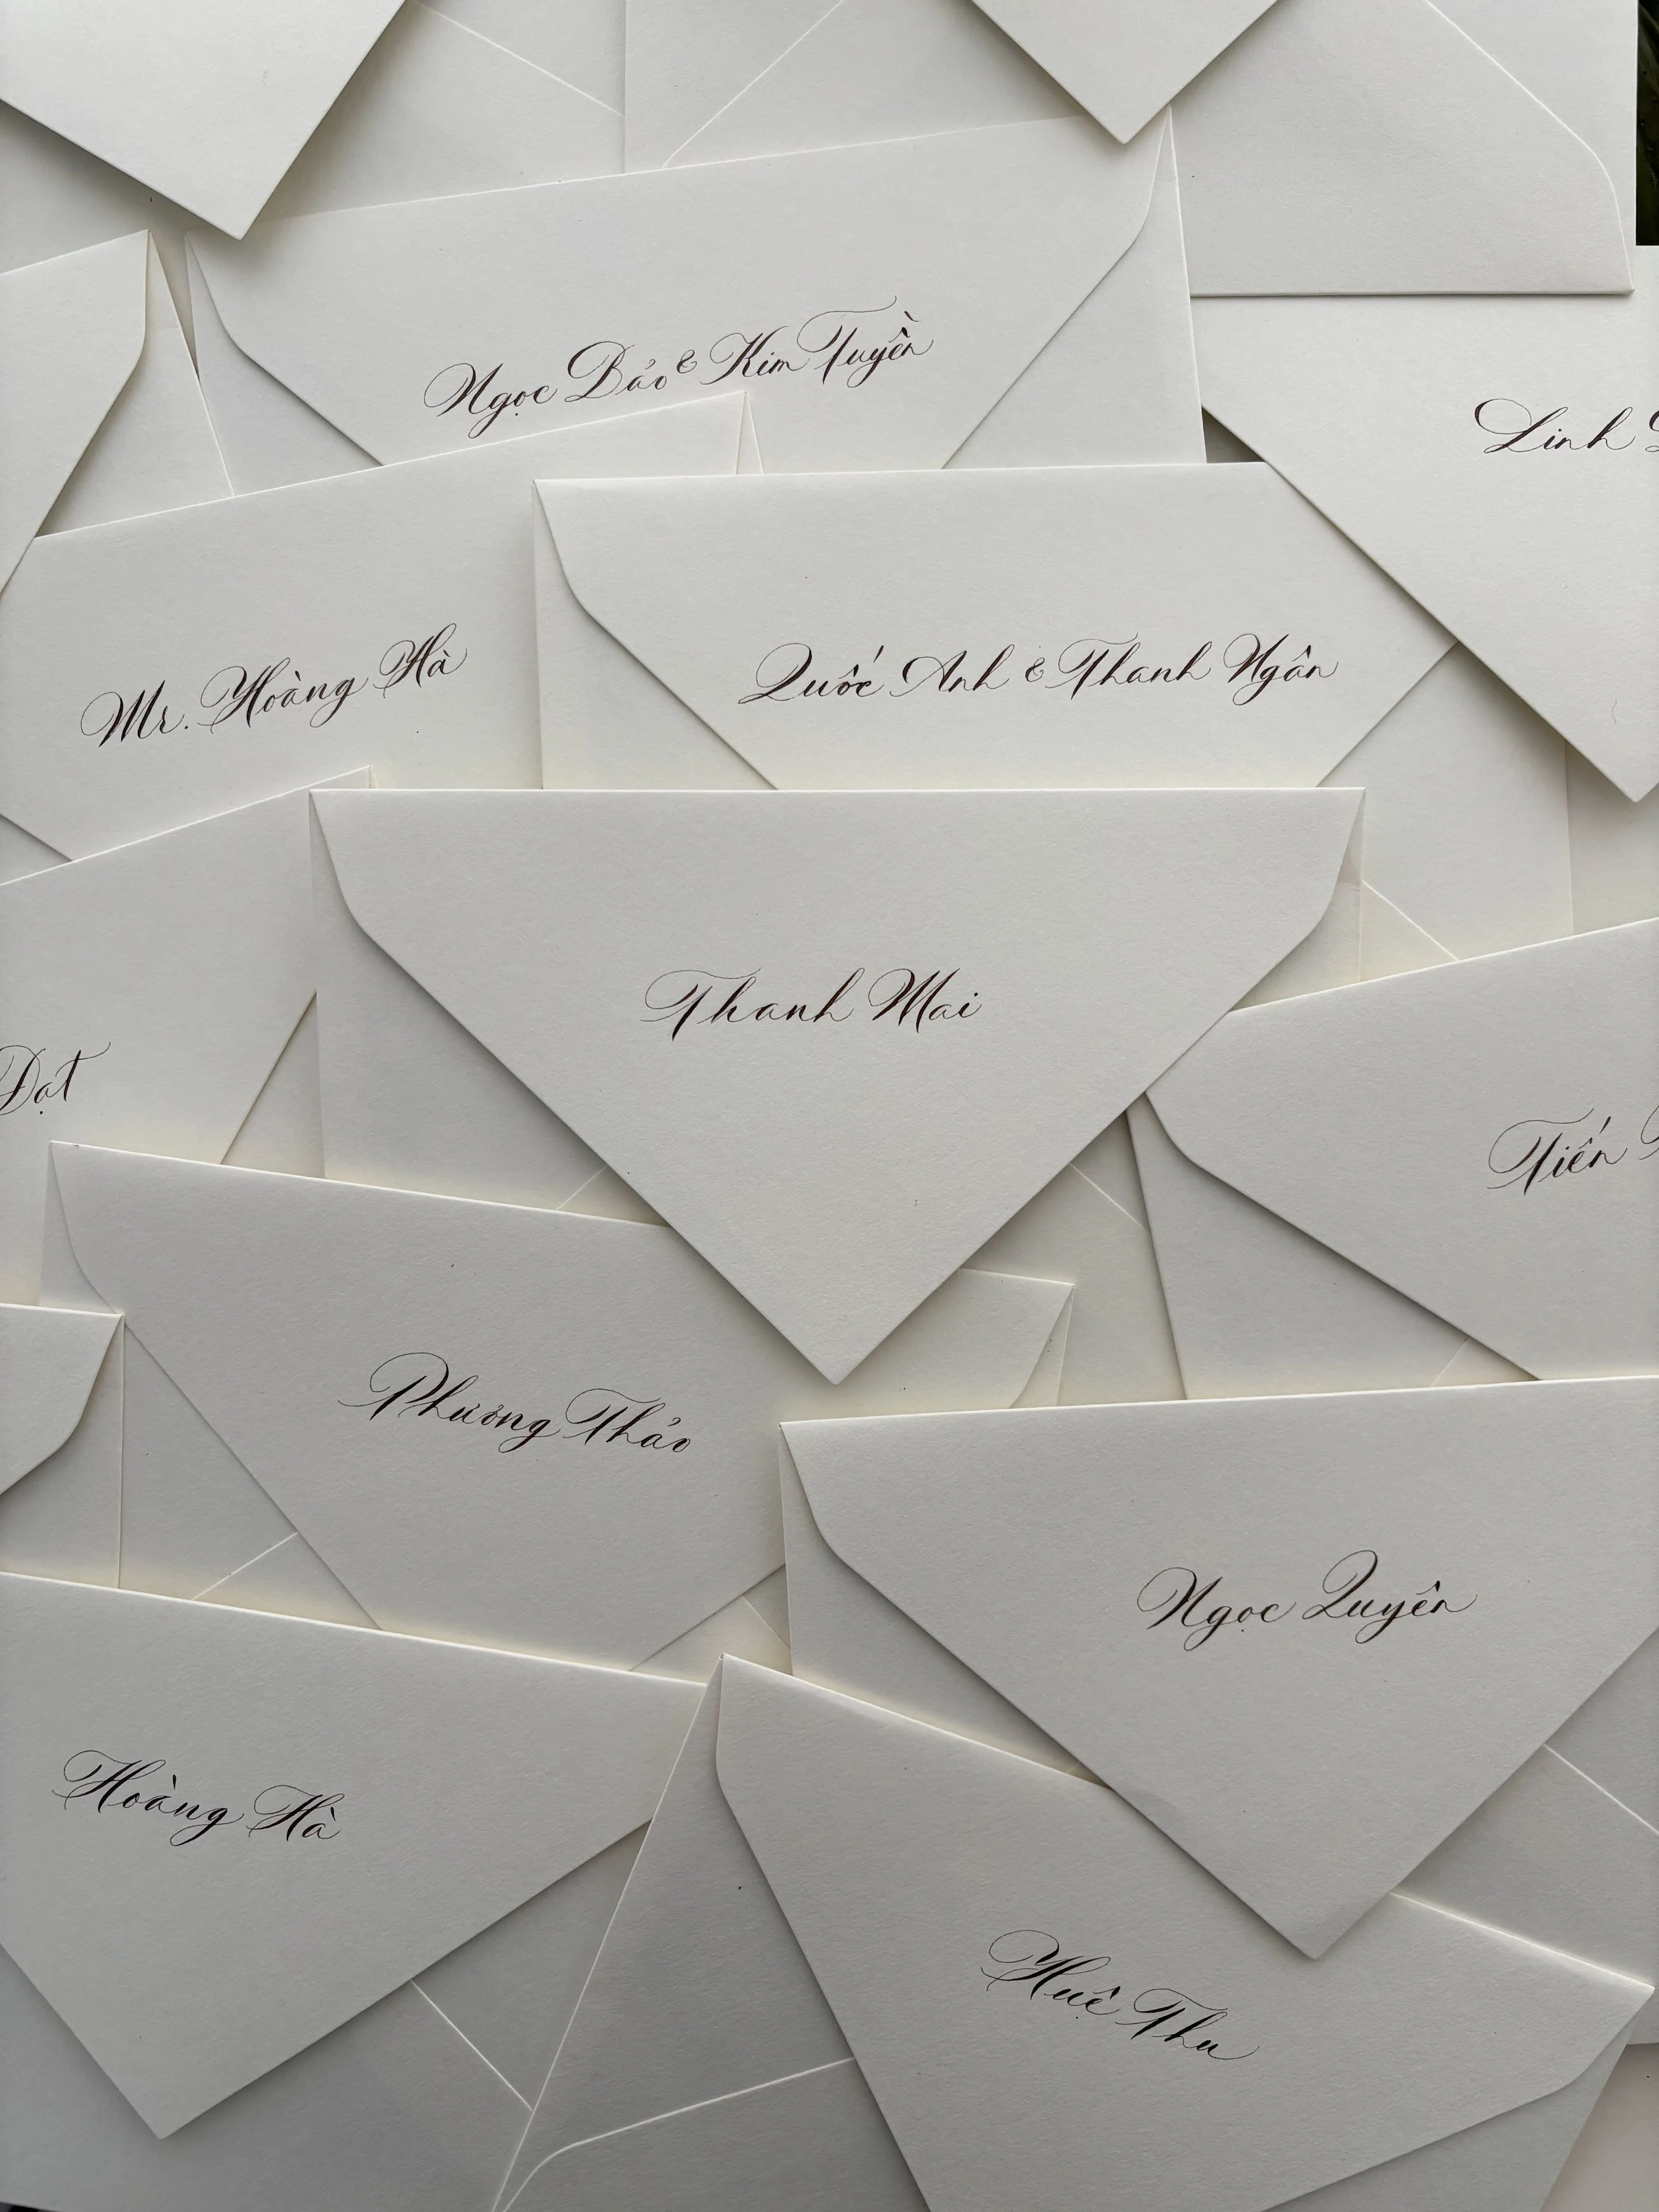 Ngọc Bảo & Kim Tuyền
Linh
Mr. Hoàng Hà
Quốc Anh & Thanh Ngân
Thanh Mai
Đạt
Tiến
Phương Thảo
Ngọc Quyên
Hoàng Hà
Huệ Thu